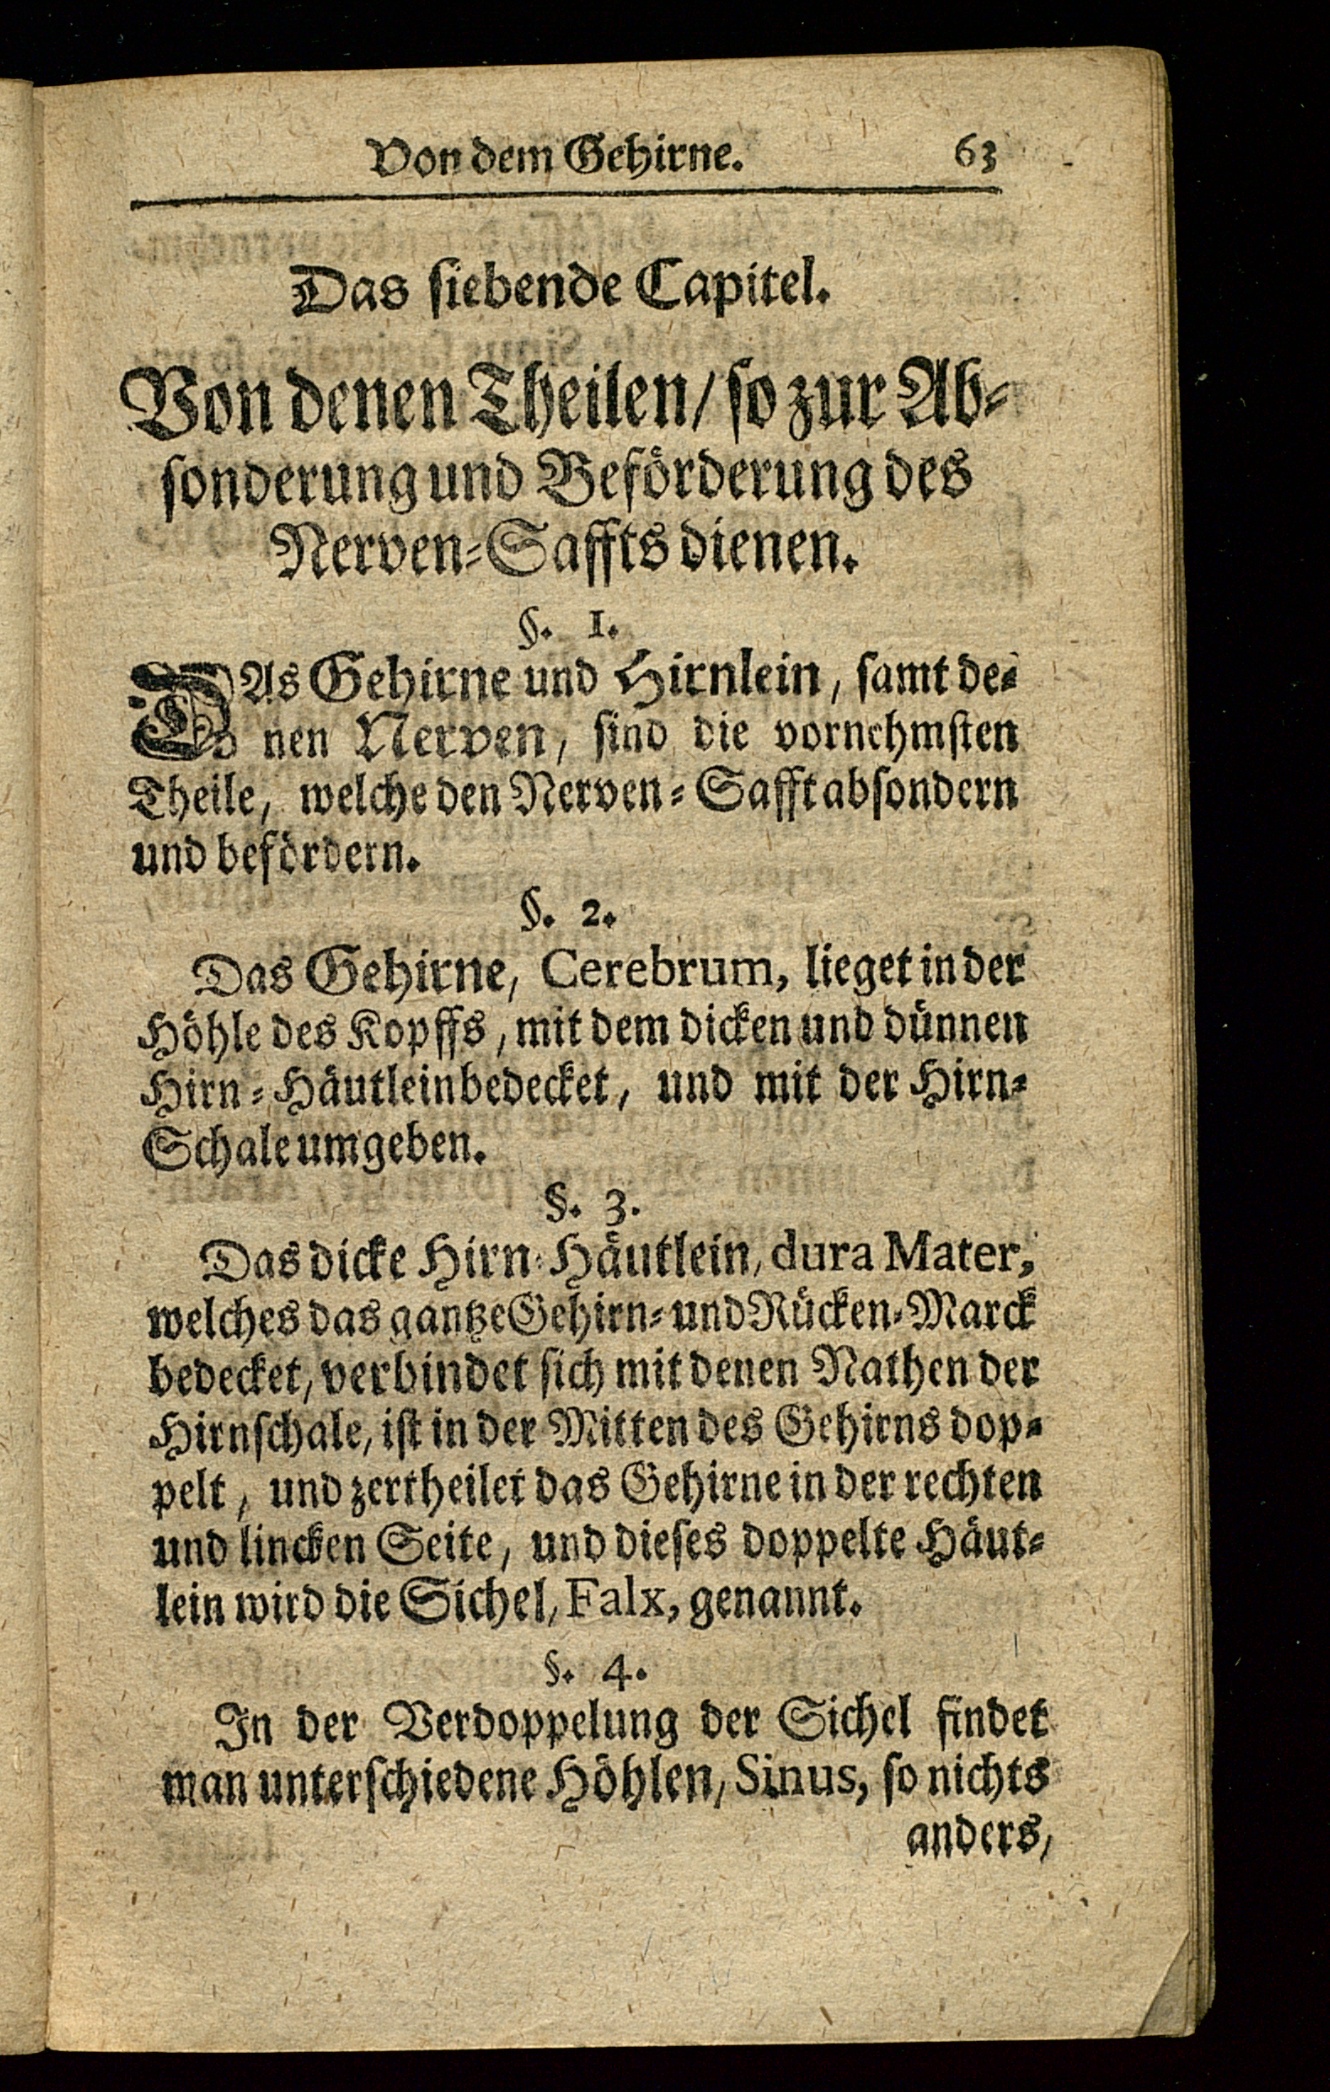 Von dem Gehirne. 63
Das siebende Capitel.
Von denen Theilen/ so zur Ab-
sonderung und Beförderung des
Nerven-Saffts dienen.
§. 1.
DAs Gehirne und Hirnlein, samt de-
nen Nerven, sind die vornehmsten
Theile, welche den Nerven-Safft absondern
und befördern.
§. 2.
Das Gehirne, Cerebrum, lieget in der
Höhle des Kopffs, mit dem dicken und dünnen
Hirn-Häutlein bedecket, und mit der Hirn-
Schale umgeben.
§. 3.
Das dicke Hirn-Häutlein, dura Mater,
welches das gantze Gehirn- und Rücken-Marck
bedecket, verbindet sich mit denen Nathen der
Hirnschale, ist in der Mitten des Gehirns dop-
pelt, und zertheilet das Gehirne in der rechten
und lincken Seite, und dieses doppelte Häut-
lein wird die Sichel, Falx, genannt.
§. 4.
In der Verdoppelung der Sichel findet
man unterschiedene Höhlen, Sinus, so nichts
anders,